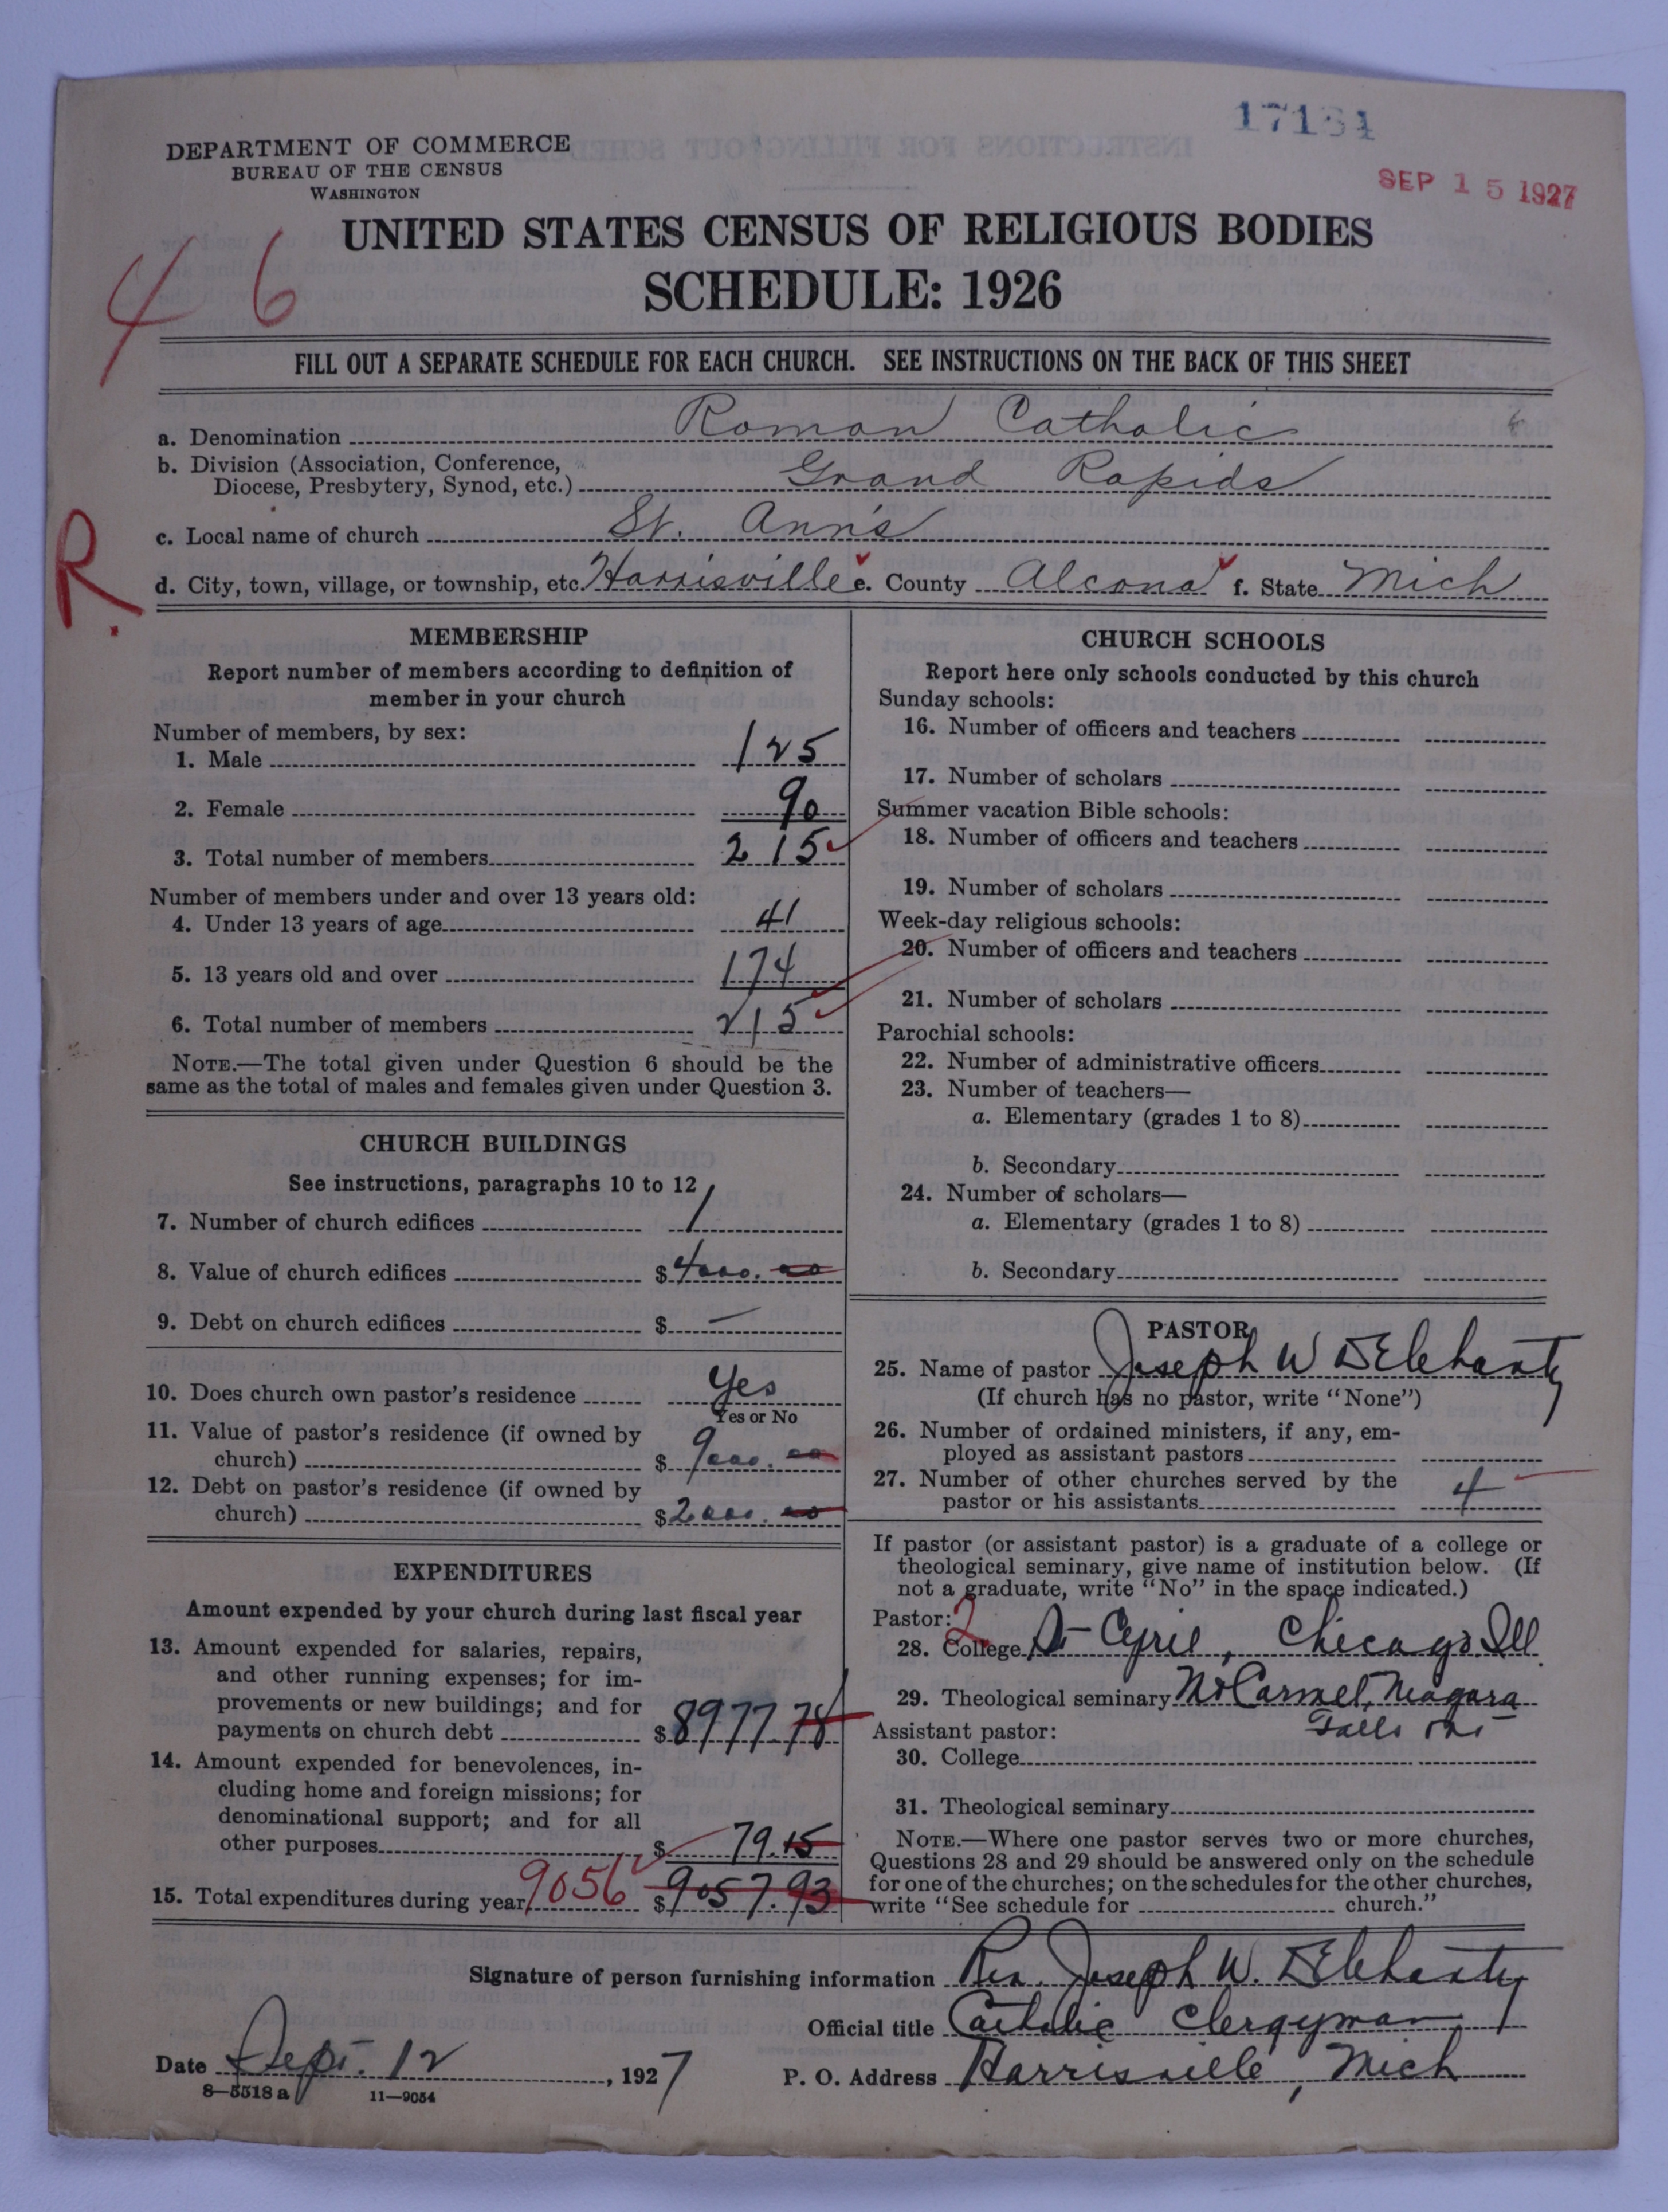 17134
SEP 15 1927
DEPARTMENT OF COMMERCE
BUREAU OF THE CENSUS
WASHINGTON
UNITED STATES CENSUS OF RELIGIOUS BODIES
SCHEDULE: 1926
46
FILL OUT A SEPARATE SCHEDULE FOR EACH CHURCH. SEE INSTRUCTIONS ON THE BACK OF THIS SHEET
a. Denomination Roman Catholic
b. Division (Association, Conference, Diocese, Presbytery, Synod, etc.) Grand Rapids
c. Local name of church St. Ann's
R.
d. City, town, village, or township, etc. Harrisville e. County Alcona f. State Mich
MEMBERSHIP
Report number of members according to definition of
member in your church
Number of members, by sex:
1. Male 125
2. Female 90
3. Total number of members 215
Number of members under and over 13 years old:
4. Under 13 years of age 41
5. 13 years old and over 174
6. Total number of members 215
NOTE.—The total given under Question 6 should be the
same as the total of males and females given under Question 3.
CHURCH BUILDINGS
See instructions, paragraphs 10 to 12
7. Number of church edifices 1
8. Value of church edifices $4000.00
9. Debt on church edifices $ —
10. Does church own pastor's residence Yes
Yes or No
11. Value of pastor's residence (if owned by
church) $9000.00
12. Debt on pastor's residence (if owned by
church) $2000.00
EXPENDITURES
Amount expended by your church during last fiscal year
13. Amount expended for salaries, repairs,
and other running expenses; for im-
provements or new buildings; and for
payments on church debt $8977.78
14. Amount expended for benevolences, in-
cluding home and foreign missions; for
denominational support; and for all
other purposes $79.15
15. Total expenditures during year 9056 $9057.93
CHURCH SCHOOLS
Report here only schools conducted by this church
Sunday schools:
16. Number of officers and teachers
17. Number of scholars
Summer vacation Bible schools:
18. Number of officers and teachers
19. Number of scholars
Week-day religious schools:
20. Number of officers and teachers
21. Number of scholars
Parochial schools:
22. Number of administrative officers
23. Number of teachers—
a. Elementary (grades 1 to 8)
b. Secondary
24. Number of scholars—
a. Elementary (grades 1 to 8)
b. Secondary
PASTOR
25. Name of pastor Joseph W DElehanty
(If church has no pastor, write "None")
26. Number of ordained ministers, if any, em-
ployed as assistant pastors
27. Number of other churches served by the
pastor or his assistants 4
If pastor (or assistant pastor) is a graduate of a college or
theological seminary, give name of institution below. (If
not a graduate, write "No" in the space indicated.)
Pastor: 2
28. College St Cyril, Chicago. Ill.
29. Theological seminary Mt Carmel, Niagara
Falls Ont
Assistant pastor:
30. College
31. Theological seminary
NOTE.—Where one pastor serves two or more churches,
Questions 28 and 29 should be answered only on the schedule
for one of the churches; on the schedules for the other churches,
write "See schedule for church."
Signature of person furnishing information Rev. Joseph W. DElehanty
Official title Catholic Clergyman
Date Sept. 12, 1927 P. O. Address Harrisville, Mich
8—5518 a 11—9054